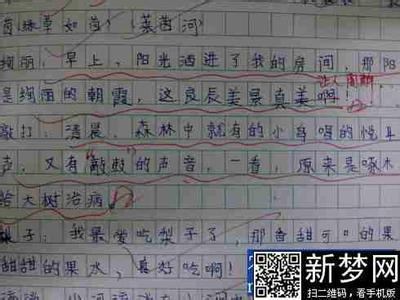 茵绿草如茵)(莱茵河)
绚丽:早上,阳光洒进了我的房间,那阳
让人陶醉
是绚丽的朝霞,这良辰美景真美啊!
敲打:清晨,森林中就有的小鸟唱的悦耳
声,又有"敲鼓的声音,一看,原来是啄木
给大树治病
梨子:我最爱吃梨子了,那香甜可口的果
甜甜的果水,真好吃啊!
新梦网
扫二维码,看手机版